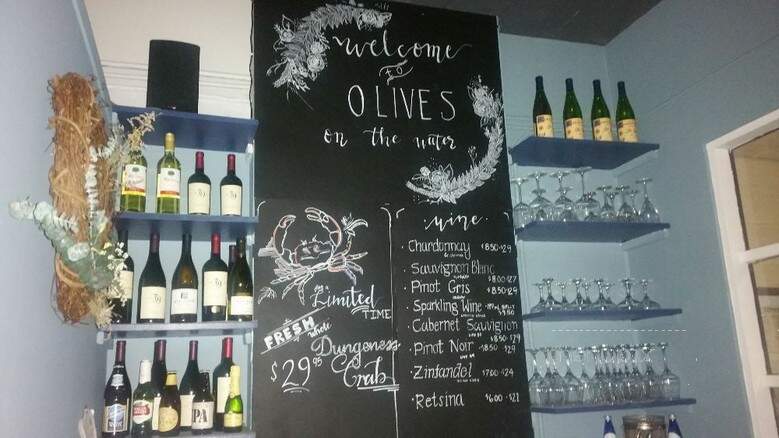 welcome
to
OLIVES
on the water
Limited
TIME
FRESH whole
Dungeness
Crab
$29.95
wine
Chardonnay $8.50-29
Sauvignon Blanc
$8.00-27
Pinot Gris $8.50-29
Sparkling Wine
Cabernet Sauvignon
$8.50-29
Pinot Noir $8.50 $29
Zinfandel $7.00-$24
Retsina $6.00-$21
IPA